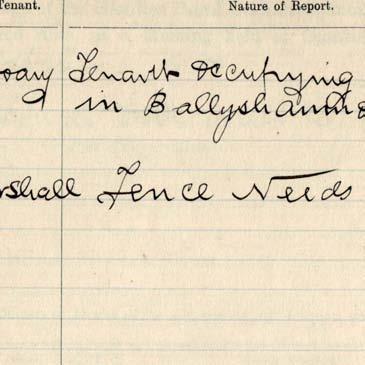 Tenant. Nature of Report.
Tenant Occupying
in Ballyshann
shall Fence Needs